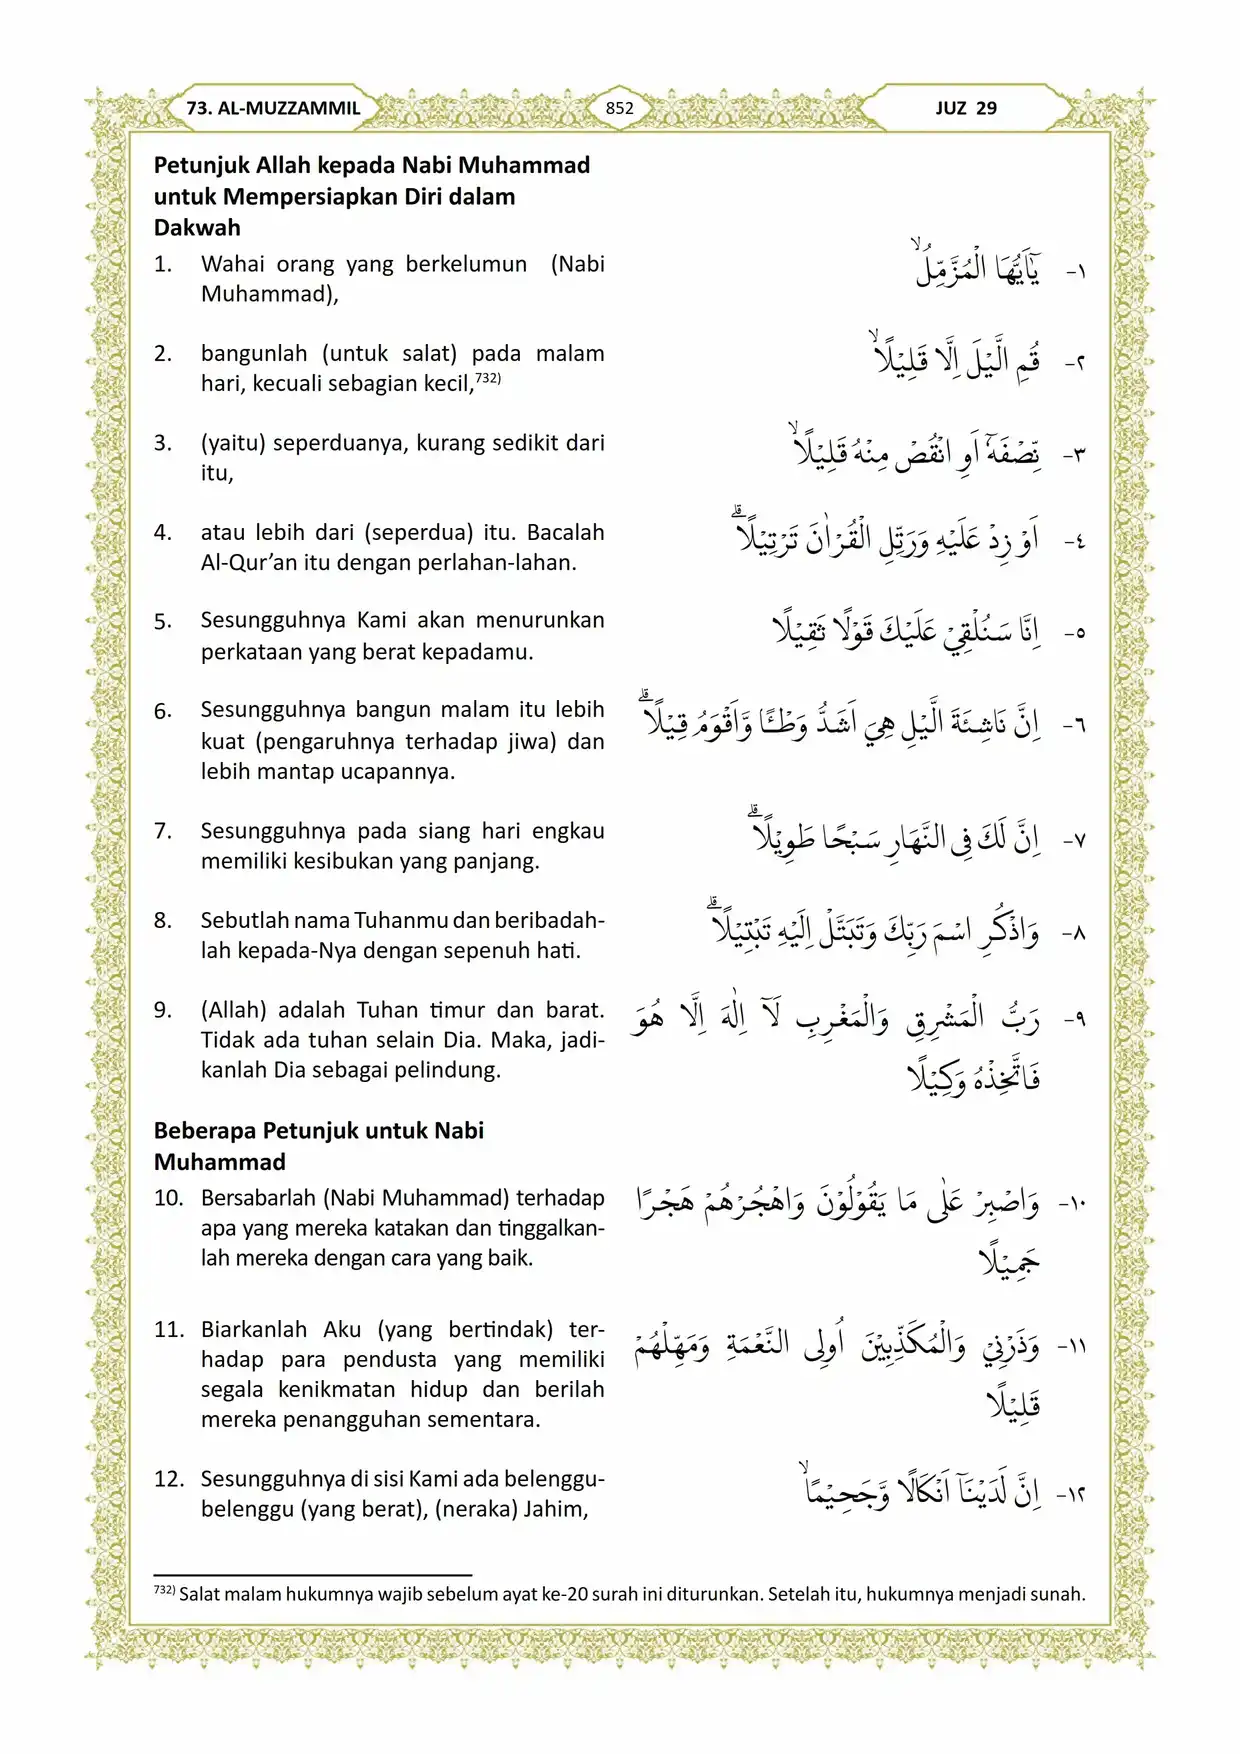 73. AL-MUZZAMMIL
852
JUZ 29
Petunjuk Allah kepada Nabi Muhammad
untuk Mempersiapkan Diri dalam
Dakwah
1. Wahai orang yang berkelumun (Nabi
Muhammad),
١- يٰٓاَيُّهَا الْمُزَّمِّلُۙ
2. bangunlah (untuk salat) pada malam
hari, kecuali sebagian kecil,732)
٢- قُمِ الَّيْلَ اِلَّا قَلِيْلًاۙ
3. (yaitu) seperduanya, kurang sedikit dari
itu,
٣- نِّصْفَهٗٓ اَوِ انْقُصْ مِنْهُ قَلِيْلًاۙ
4. atau lebih dari (seperdua) itu. Bacalah
Al-Qur’an itu dengan perlahan-lahan.
٤- اَوْ زِدْ عَلَيْهِ وَرَتِّلِ الْقُرْاٰنَ تَرْتِيْلًاۗ
5. Sesungguhnya Kami akan menurunkan
perkataan yang berat kepadamu.
٥- اِنَّا سَنُلْقِيْ عَلَيْكَ قَوْلًا ثَقِيْلًا
6. Sesungguhnya bangun malam itu lebih
kuat (pengaruhnya terhadap jiwa) dan
lebih mantap ucapannya.
٦- اِنَّ نَاشِئَةَ الَّيْلِ هِيَ اَشَدُّ وَطْـًٔا وَّاَقْوَمُ قِيْلًاۗ
7. Sesungguhnya pada siang hari engkau
memiliki kesibukan yang panjang.
٧- اِنَّ لَكَ فِى النَّهَارِ سَبْحًا طَوِيْلًاۗ
8. Sebutlah nama Tuhanmu dan beribadah-
lah kepada-Nya dengan sepenuh hati.
٨- وَاذْكُرِ اسْمَ رَبِّكَ وَتَبَتَّلْ اِلَيْهِ تَبْتِيْلًاۗ
9. (Allah) adalah Tuhan timur dan barat.
Tidak ada tuhan selain Dia. Maka, jadi-
kanlah Dia sebagai pelindung.
٩- رَبُّ الْمَشْرِقِ وَالْمَغْرِبِ لَآ اِلٰهَ اِلَّا هُوَ
فَاتَّخِذْهُ وَكِيْلًا
Beberapa Petunjuk untuk Nabi
Muhammad
10. Bersabarlah (Nabi Muhammad) terhadap
apa yang mereka katakan dan tinggalkan-
lah mereka dengan cara yang baik.
١٠- وَاصْبِرْ عَلٰى مَا يَقُوْلُوْنَ وَاهْجُرْهُمْ هَجْرًا
جَمِيْلًا
11. Biarkanlah Aku (yang bertindak) ter-
hadap para pendusta yang memiliki
segala kenikmatan hidup dan berilah
mereka penangguhan sementara.
١١- وَذَرْنِيْ وَالْمُكَذِّبِيْنَ اُولِى النَّعْمَةِ وَمَهِّلْهُمْ
قَلِيْلًا
12. Sesungguhnya di sisi Kami ada belenggu-
belenggu (yang berat), (neraka) Jahim,
١٢- اِنَّ لَدَيْنَآ اَنْكَالًا وَّجَحِيْمًاۙ
732) Salat malam hukumnya wajib sebelum ayat ke-20 surah ini diturunkan. Setelah itu, hukumnya menjadi sunah.